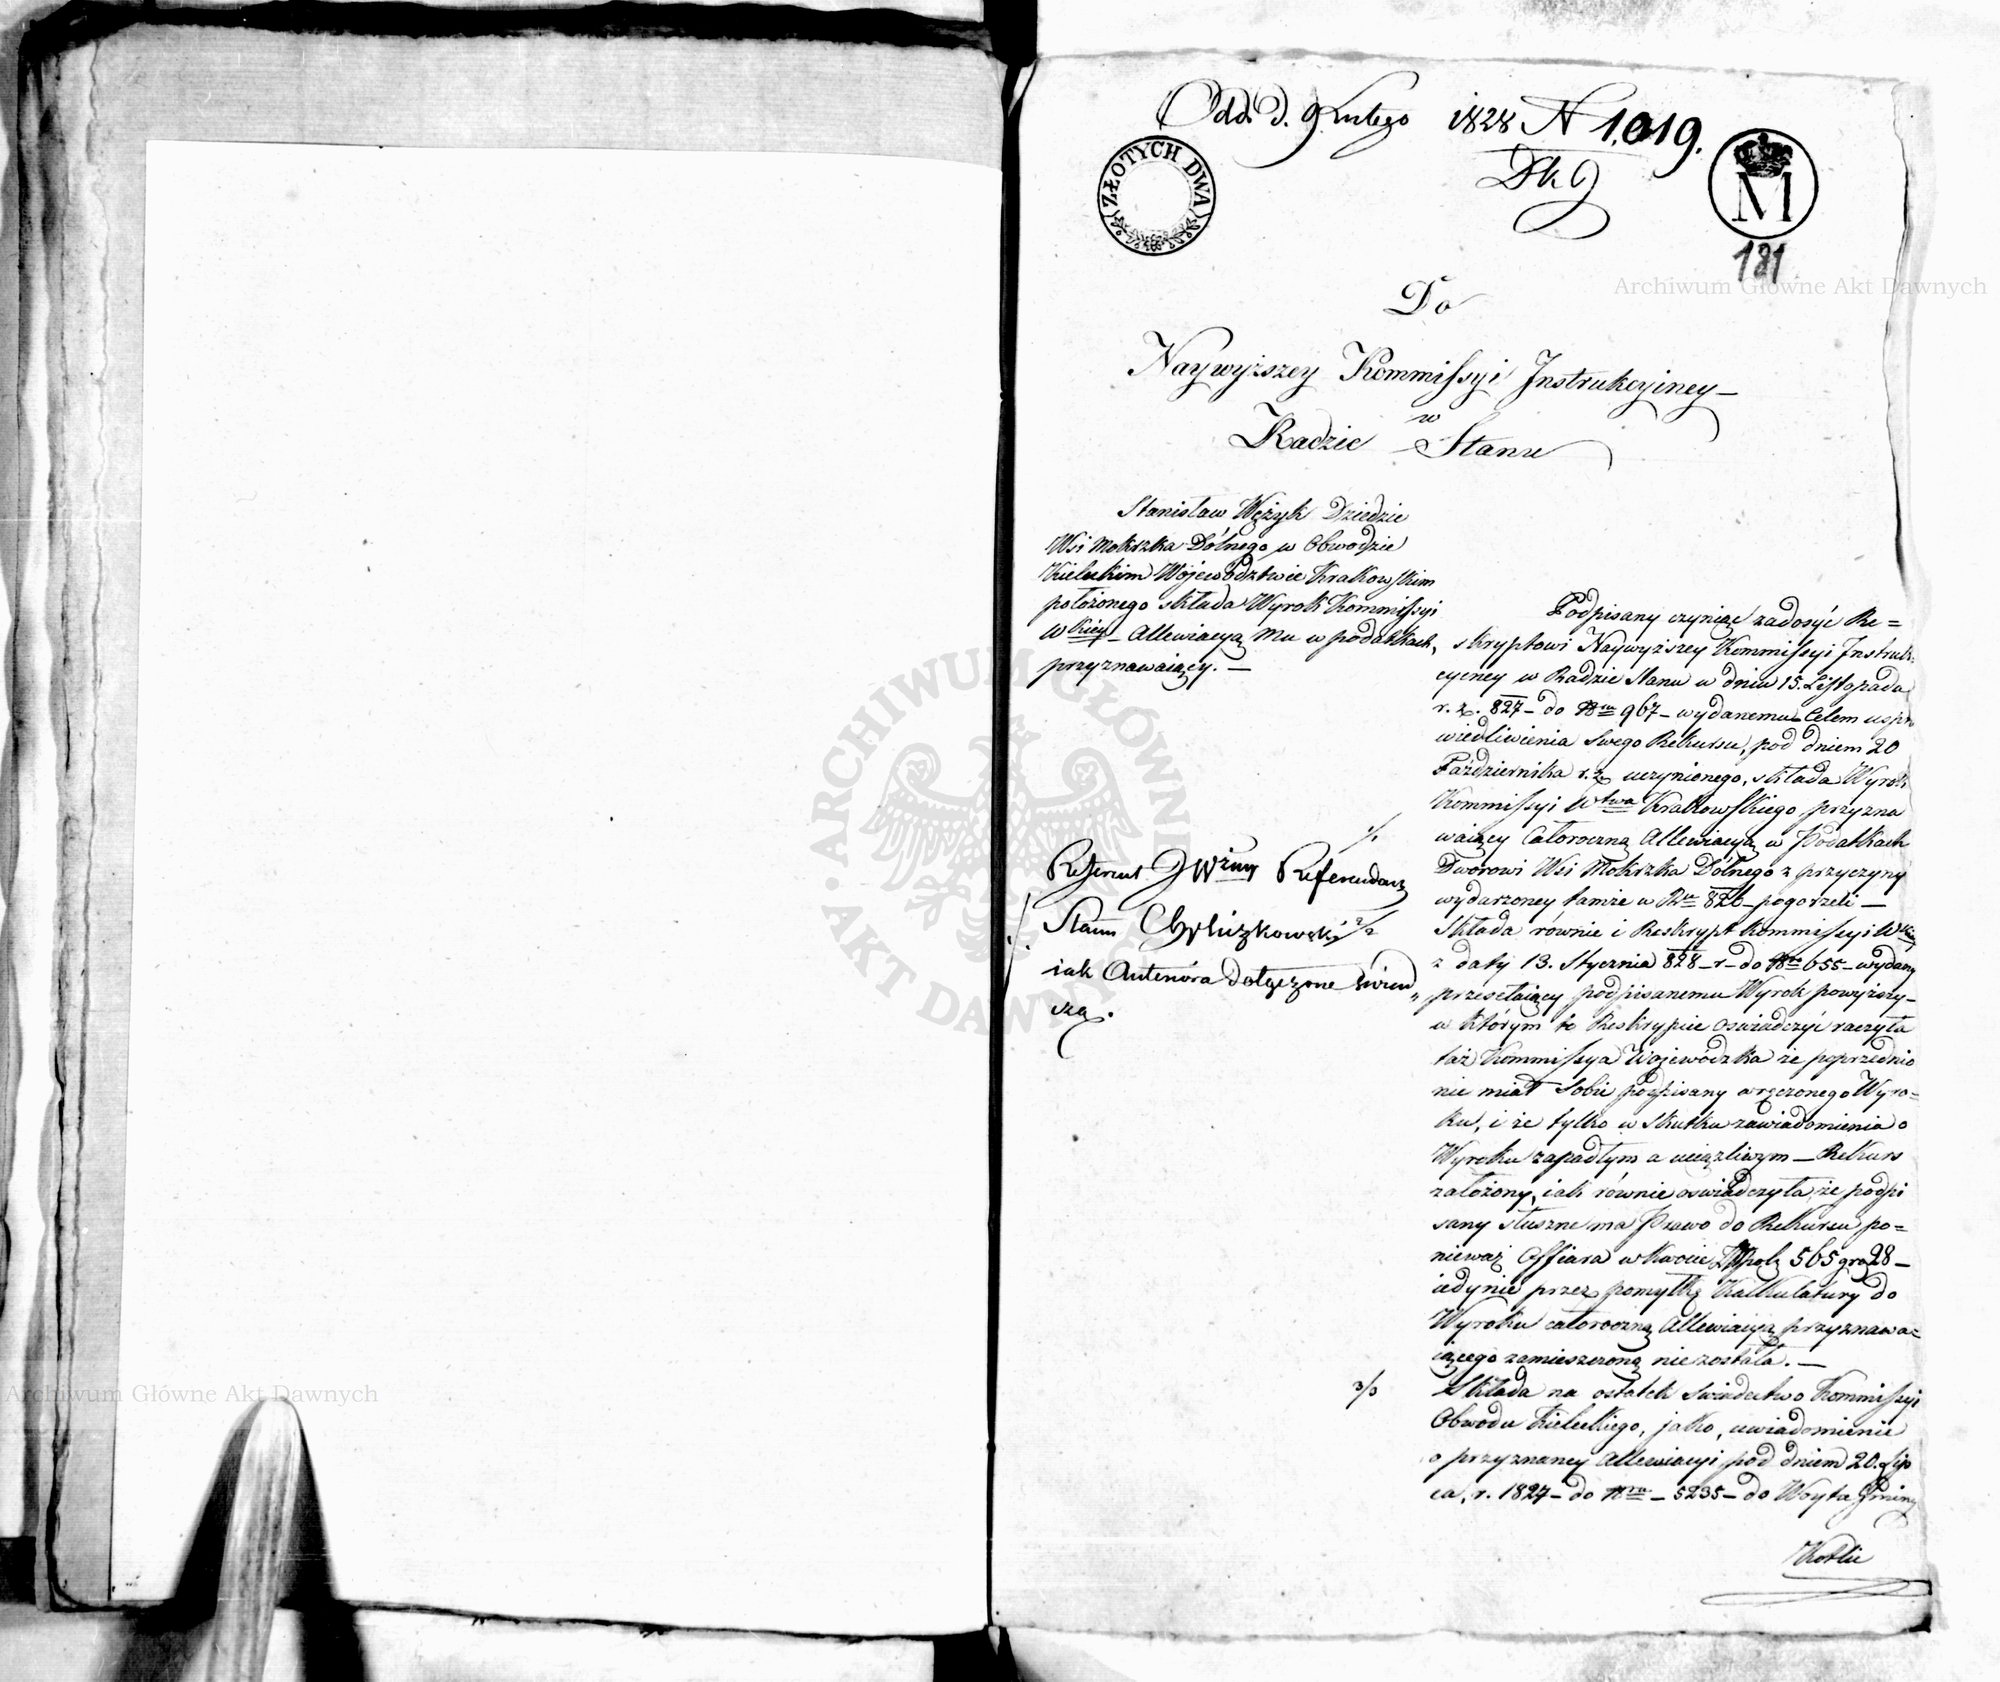 Odd. d. 9 Lutego 1828 N 1,019.
ZŁOTYCH DWA
M
181
Do
Naywyższey Kommissyi Instrukcyiney
w
Radzie Stanu
Stanisław Wężyk Dziedzic
Wsi Mokrzka Dólnego w Obwodzie
Kieleckim Województwie Krakowskim
położonego składa Wyrok Kommissyi
Wkiey Allewiacyą Mu w podatkach
przyznawaiący. —
1/1
Referent JWżny Referendarz
Stanu
2/2
iak Autenóra Dołączone
Podpisany czyniąc zadosyć Re=
skryptowi Naywyższey Kommissyi Instruk
cyiney w Radzie Stanu w dniu 15. Listopada
r. z. 827 – do Nru 967 – wydanemu Celem uspra
wiedliwienia Swego Rekursu, pod dniem 20
Października r. z. uczynionego, składa Wyrok
Kommissyi Wtwa Krakowskiego przyzna
waiący Całoroczną Allewiacyą w Podatkach
Dworowi Wsi Mokrzka Dólnego z przyczyny
wydarzoney tamże w Rku 826 pogorzeli —
Składa równie i Reskrypt Kommissyi Wkiey
z daty 13. Stycznia 828 – r – do Nru 655 – wydany
przesełaiący podpisanemu Wyrok powyższy –
w którym to Reskrypcie oświadczyć raczyła
taż Kommissya Wojewódzka że poprzednio
nie miał Sobie podpisany wręczonego Wyro=
ku, i że tylko w skutku zawiadomienia o
Wyroku zapadłym a uciążliwym — Rekurs
założony, iak równie oświadczyła, że podpi
sany słuszne ma Prawo do Rekursu po=
nieważ Offiara w kwocie Złpols 565 gro 28 —
iedynie przez pomyłkę Kalkulatury do
Wyroku całoroczną Allewiacyą przyznawa=
iącego zamieszczoną nie została. —
3/3
Składa na ostatek Swiadectwo Kommissyi
Obwodu Kieleckiego, jako, uwiadomienie
o przyznaney Allewiacyi pod dniem 20. Lip
ca, r. 1827 – do Nra – 5235 – do Woyta Gminy
Archiwum Główne Akt Dawnych
Archiwum Główne Akt Dawnych
ARCHIWUM GŁÓWNE
AKT DAWNYCH